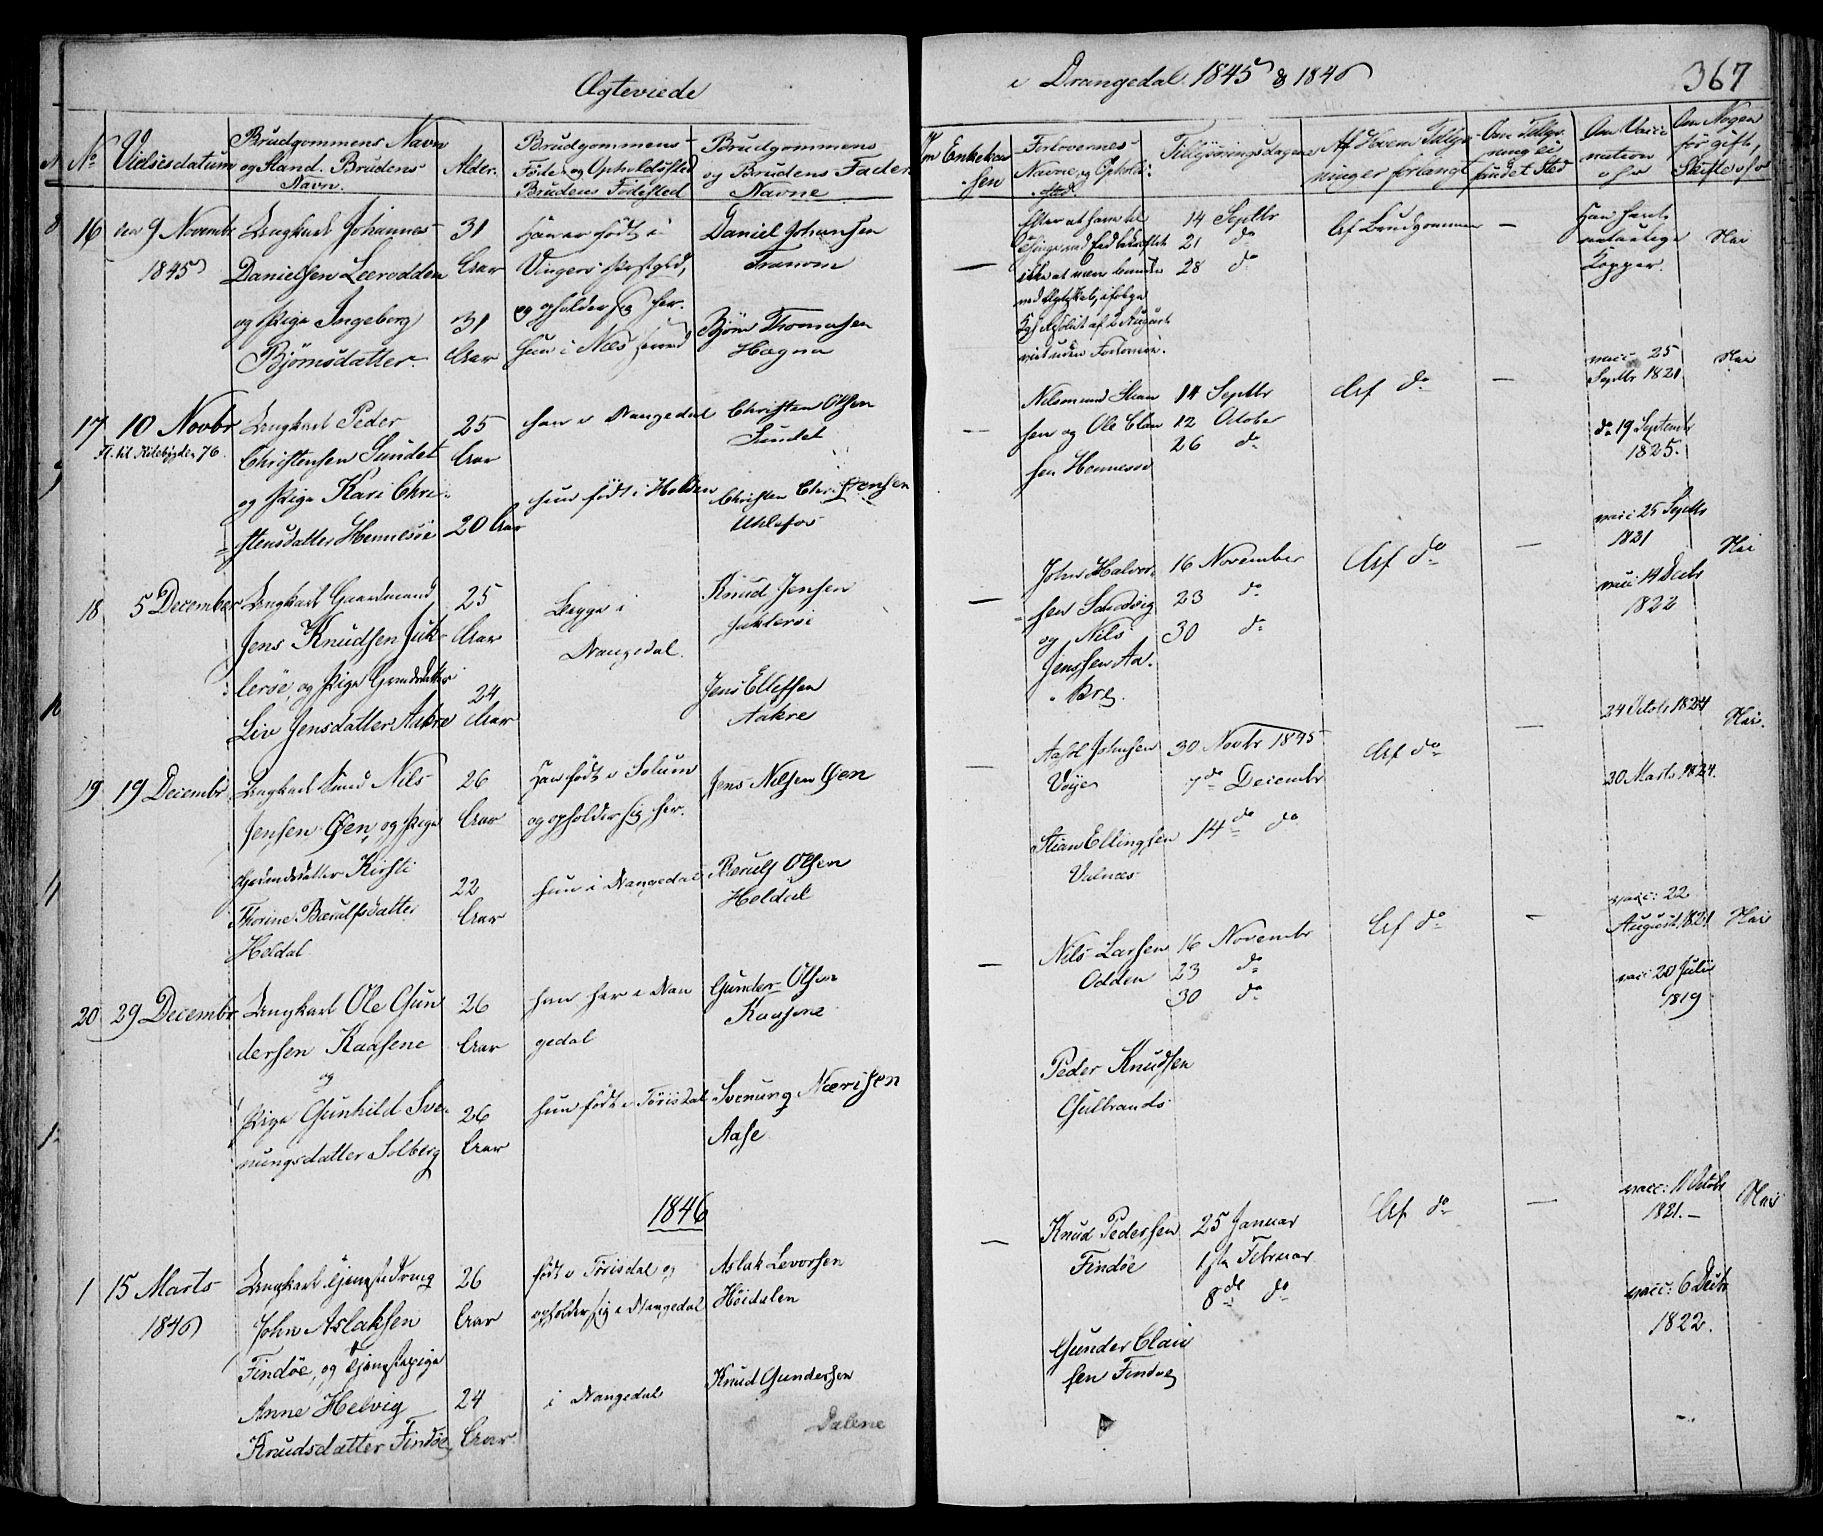 Ægteviede
i Drangedal. 1845 & 1846
367
No
Vielsesdatum
Brudgommens Navn
og Stand. Brudens
Navn.
Alder.
Brudgommens
Føde- og Opholdssted
Brudens Fødested
Brudgommens
og Brudens Fader
Navne
Om Enkeken
sen
Forlovernes
Navne og Ophold:
sted.
Tillysningsdagen
Af Hvem Tillys-
ninger forlangt
Om Tillys-
ning ei
fundet sted
Om Vacci
nation
osv
Om Nogen
før gift,
Skifte osv
16
den 9 Novembr
1845
Ungkarl Johannes
Danielsen Leerodden
og Pige Ingeborg
Bjørnsdatter
31
Aar
31
Aar
Han er født i
Vinger Præstegjeld,
og opholder sig her.
hun i Næs
Daniel Johansen
Bjørn Thomasen
Hagna
14 Septbr
21 do
28 do
Af Brudgommen
—
Han havt
naturlige
Kopper.
Nei
vacc: 25
Septbr 1821
Nei
17
10 Novbr
Fl. til Kilebygden 76.
Ungkarl Peder
Christensen Sundet
og Pige Kari Chri-
stensdatter Hennesøe
25
Aar
20 Aar
han i Drangedal
hun født i Holden
Christen Olsen
Sundet
Christen Christensen
Uhlefos
sen og Ole Clau
sen Hennesøe
14 Septbr
12 October
26 do
Af do
—
do 19 September
1825.
18
5 December
Ungkarl Gaardmand
Jens Knudsen Juk-
lerøe, og Pige Gaardsdatter
Liv Jensdatter Aakre
25
Aar
24
Aar
Begge i
Drangedal.
Knud Jensen
Juklerøi
Jens Ellefsen
Aakre
John Halvor-
sen Sandvig
og Nils
Jenssen Aa-
kre.
16 November
23 do
30 do
Af do
—
vacc: 25 Septbr
1821
Nei
vacc: 14 Decbr
1822
19
19 Decembr
Nils
Jensen Øen, og Pige
Gaardsdatter Kirsti
Thorine Bærulfsdatter
Heldal
26
Aar
22
Aar
Han født i Solum
og opholder sig her.
hun i Drangedal
Jens Nilsen Øen
Bærulf Olsen
Heldal
Johnsen
Voje
Stian Ellingsen
Valnæs
30 Novbr 1845
7de Decembr
14de do
Af do
—
24 Octob: 1824
Nei.
30 Marts 1824.
20
29 Decembr
Ungkarl Ole Gun
dersen Kaasene
og
Pige Gunhild Sve-
nungsdatter Solberg
26
Aar
26
Aar
han her i Dran
gedal
hun født i Tørisdal
Gunder Olsen
Kaasene
Svenung Næriesen
Aase
Nils Larsen
Odden
Peder Knudsen
Gulbrands
16 Novembr
23 do
30 do
Af do
—
vacc: 22
August 1821
Nei
vacc: 20 Juli
1819
1846
1
15 Marts
1846
Ungkarl Tjenestedreng
John Aslaksen
Findøe, og Tjenestepige
Anne Helvig
Knudsdatter Findøe
26
Aar
24
Aar.
født i Tørisdal og
opholder sig i Drangedal
i Drangedal
Aslak Levorsen
Høidalen
Knud Gundersen
Dalene
Knud Pedersen
Findøe
Gunder Clau
sen Findøe
25 Januar
1ste Februar
8de do
Af do
—
vacc: 11 Octobr
1821.—
Nei
vacc: 6 Decbr
1822.